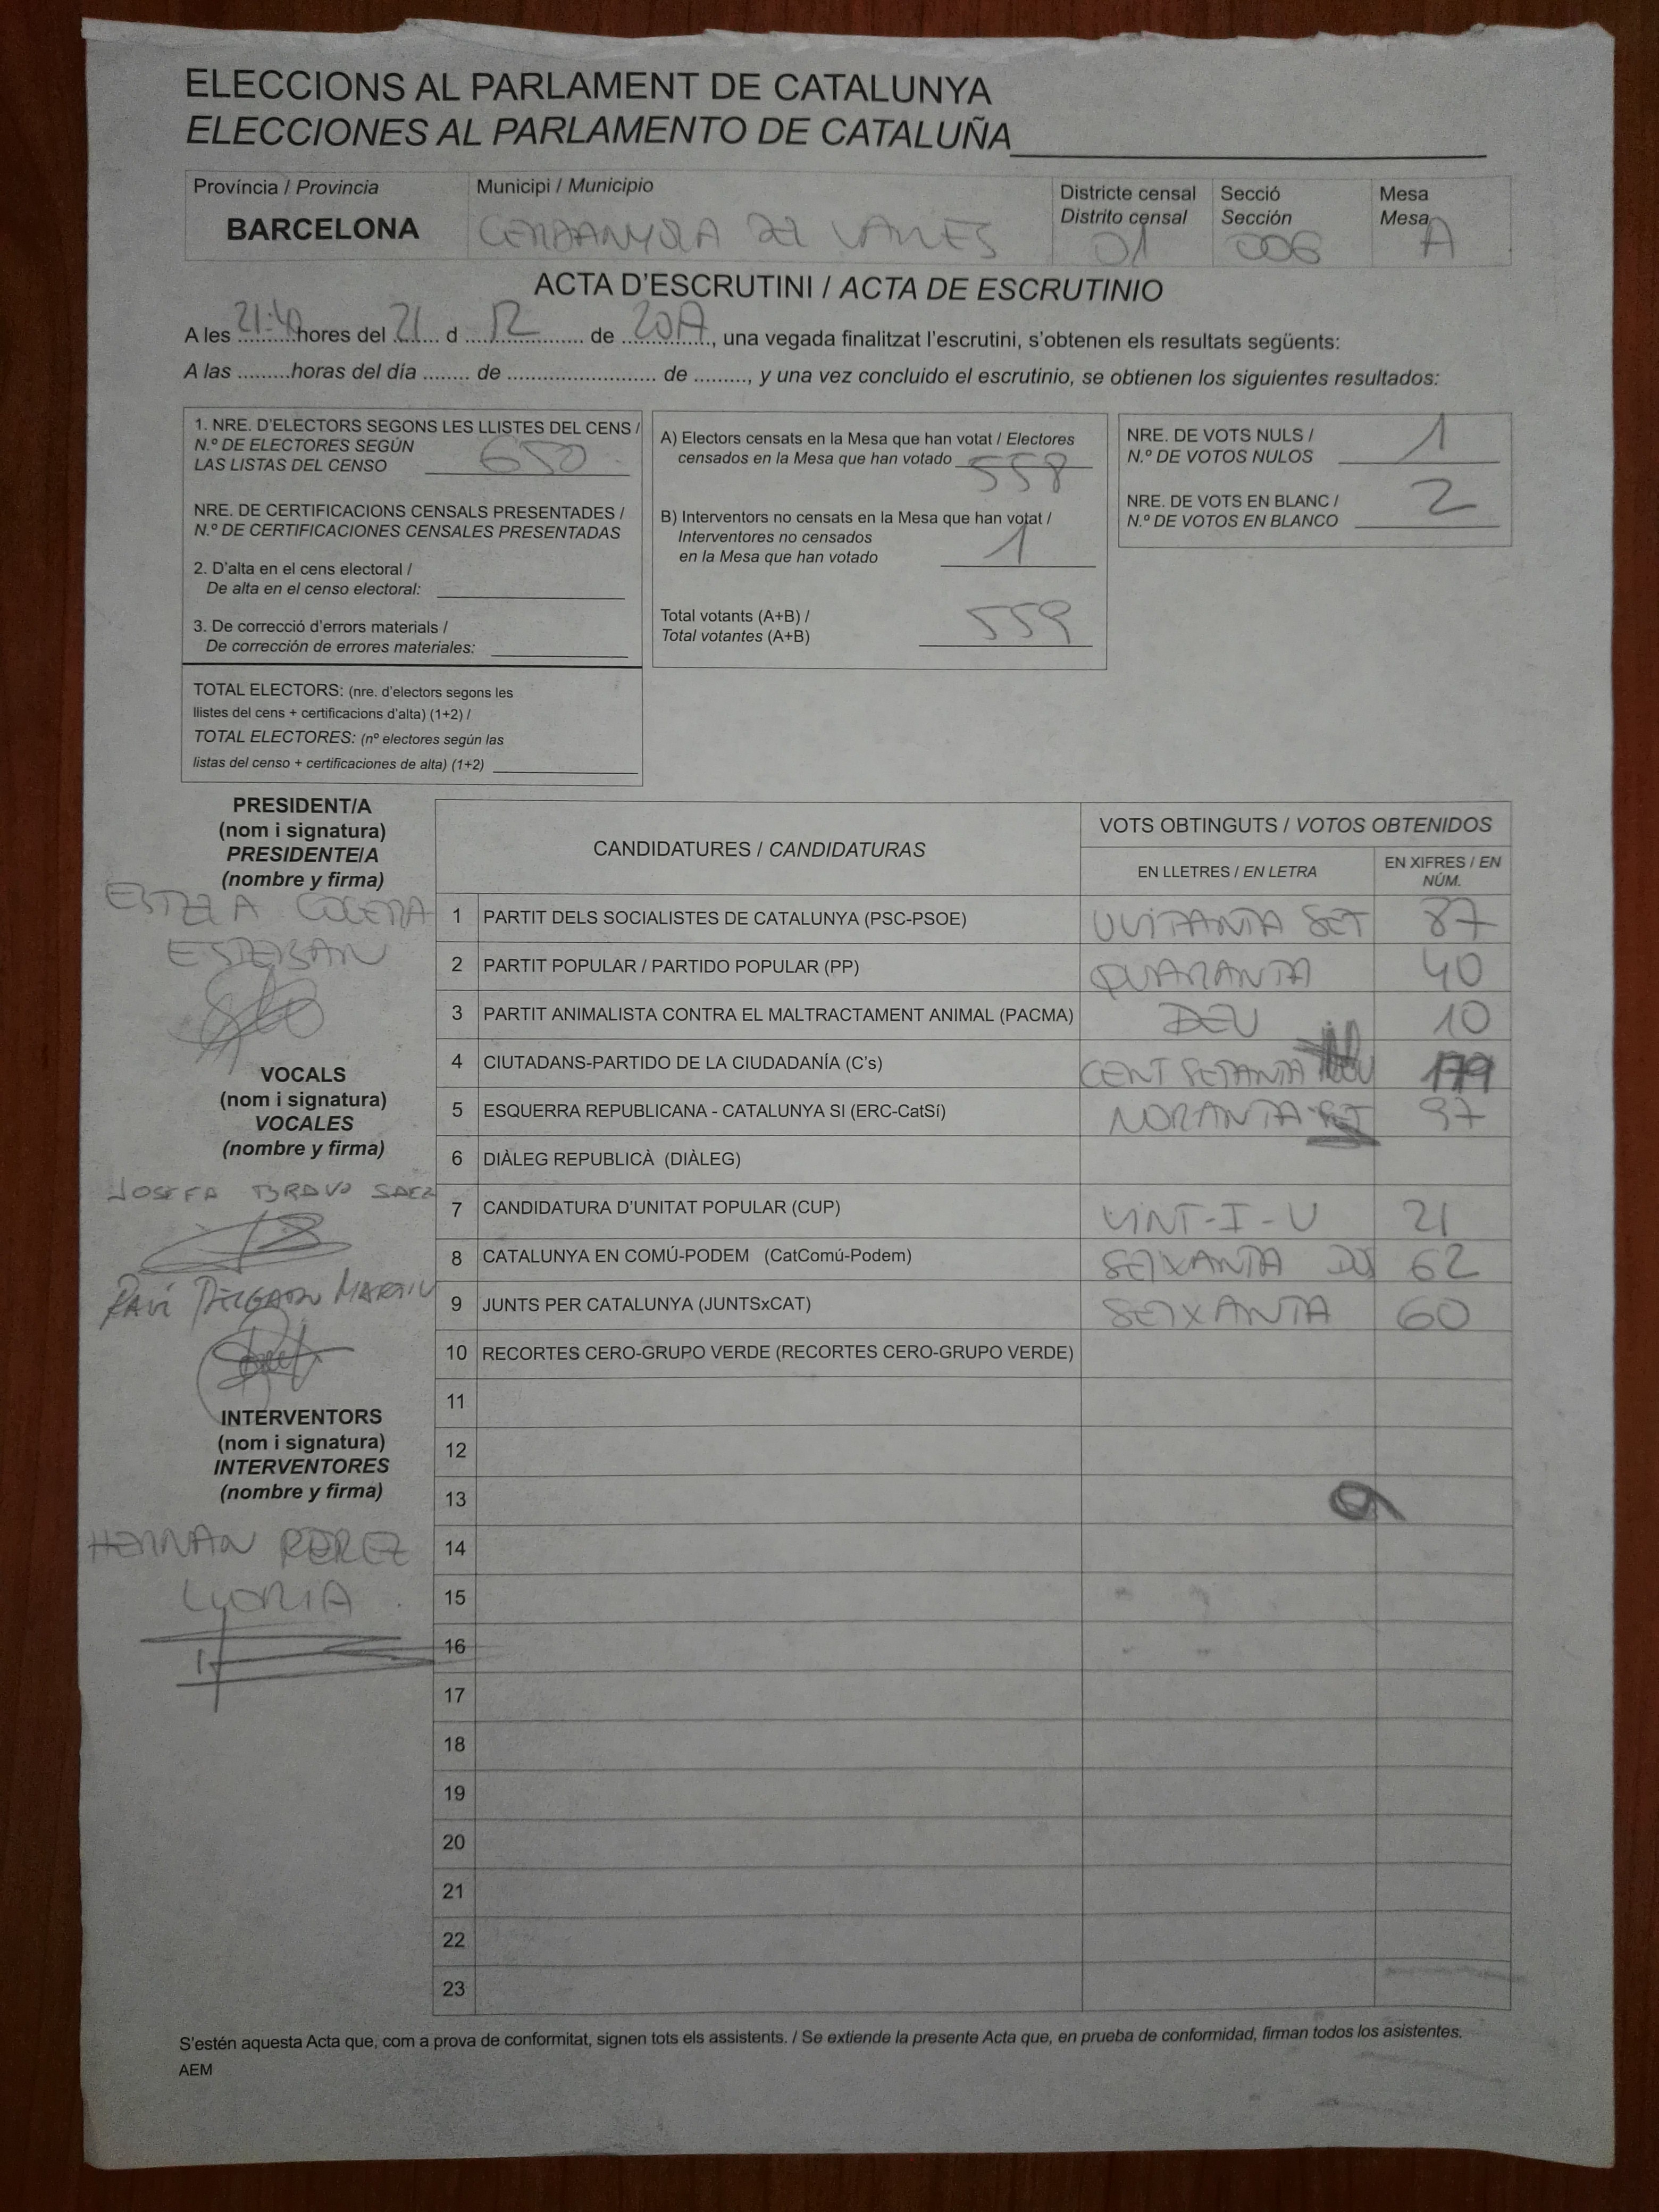 ELECCIONS AL PARLAMENT DE CATALUNYA
ELECCIONES AL PARLAMENTO DE CATALUÑA
Província / Provincia
BARCELONA
Municipi / Municipio
CERDANYOLA DEL VALLES
Districte censal
Distrito censal
01
Secció
Sección
006
Mesa
Mesa
A
ACTA D'ESCRUTINI / ACTA DE ESCRUTINIO
A les 21:40 hores del 21 d 12 de 2017, una vegada finalitzat l'escrutini, s'obtenen els resultats següents:
A las .........horas del día ........ de ........................... de ........., y una vez concluido el escrutinio, se obtienen los siguientes resultados:
1. NRE. D'ELECTORS SEGONS LES LLISTES DEL CENS /
N.º DE ELECTORES SEGÚN
LAS LISTAS DEL CENSO 650
NRE. DE CERTIFICACIONS CENSALS PRESENTADES /
N.º DE CERTIFICACIONES CENSALES PRESENTADAS
2. D'alta en el cens electoral /
De alta en el censo electoral:
3. De correcció d'errors materials /
De corrección de errores materiales:
TOTAL ELECTORS: (nre. d'electors segons les
llistes del cens + certificacions d'alta) (1+2) /
TOTAL ELECTORES: (nº electores según las
listas del censo + certificaciones de alta) (1+2)
A) Electors censats en la Mesa que han votat / Electores
censados en la Mesa que han votado 558
B) Interventors no censats en la Mesa que han votat /
Interventores no censados
en la Mesa que han votado 1
Total votants (A+B) /
Total votantes (A+B) 559
NRE. DE VOTS NULS /
N.º DE VOTOS NULOS 1
NRE. DE VOTS EN BLANC /
N.º DE VOTOS EN BLANCO 2
PRESIDENT/A
(nom i signatura)
PRESIDENTE/A
(nombre y firma)
ESTELA COCERA
ESTEBAN
VOCALS
(nom i signatura)
VOCALES
(nombre y firma)
JOSEFA BRAVO SAEZ
MARTIN
INTERVENTORS
(nom i signatura)
INTERVENTORES
(nombre y firma)
HERNAN PEREZ
LLORIA
CANDIDATURES / CANDIDATURAS
VOTS OBTINGUTS / VOTOS OBTENIDOS
EN LLETRES / EN LETRA
EN XIFRES / EN
NÚM.
1 PARTIT DELS SOCIALISTES DE CATALUNYA (PSC-PSOE) VUITANTA SET 87
2 PARTIT POPULAR / PARTIDO POPULAR (PP) QUARANTA 40
3 PARTIT ANIMALISTA CONTRA EL MALTRACTAMENT ANIMAL (PACMA) DEU 10
4 CIUTADANS-PARTIDO DE LA CIUDADANÍA (C's) CENT SETANTA NOU 179
5 ESQUERRA REPUBLICANA - CATALUNYA SI (ERC-CatSí) NORANTA SET 97
6 DIÀLEG REPUBLICÀ (DIÀLEG)
7 CANDIDATURA D'UNITAT POPULAR (CUP) VINT-I-U 21
8 CATALUNYA EN COMÚ-PODEM (CatComú-Podem) SEIXANTA DOS 62
9 JUNTS PER CATALUNYA (JUNTSxCAT) SEIXANTA 60
10 RECORTES CERO-GRUPO VERDE (RECORTES CERO-GRUPO VERDE)
11
12
13
14
15
16
17
18
19
20
21
22
23
S'estén aquesta Acta que, com a prova de conformitat, signen tots els assistents. / Se extiende la presente Acta que, en prueba de conformidad, firman todos los asistentes.
AEM